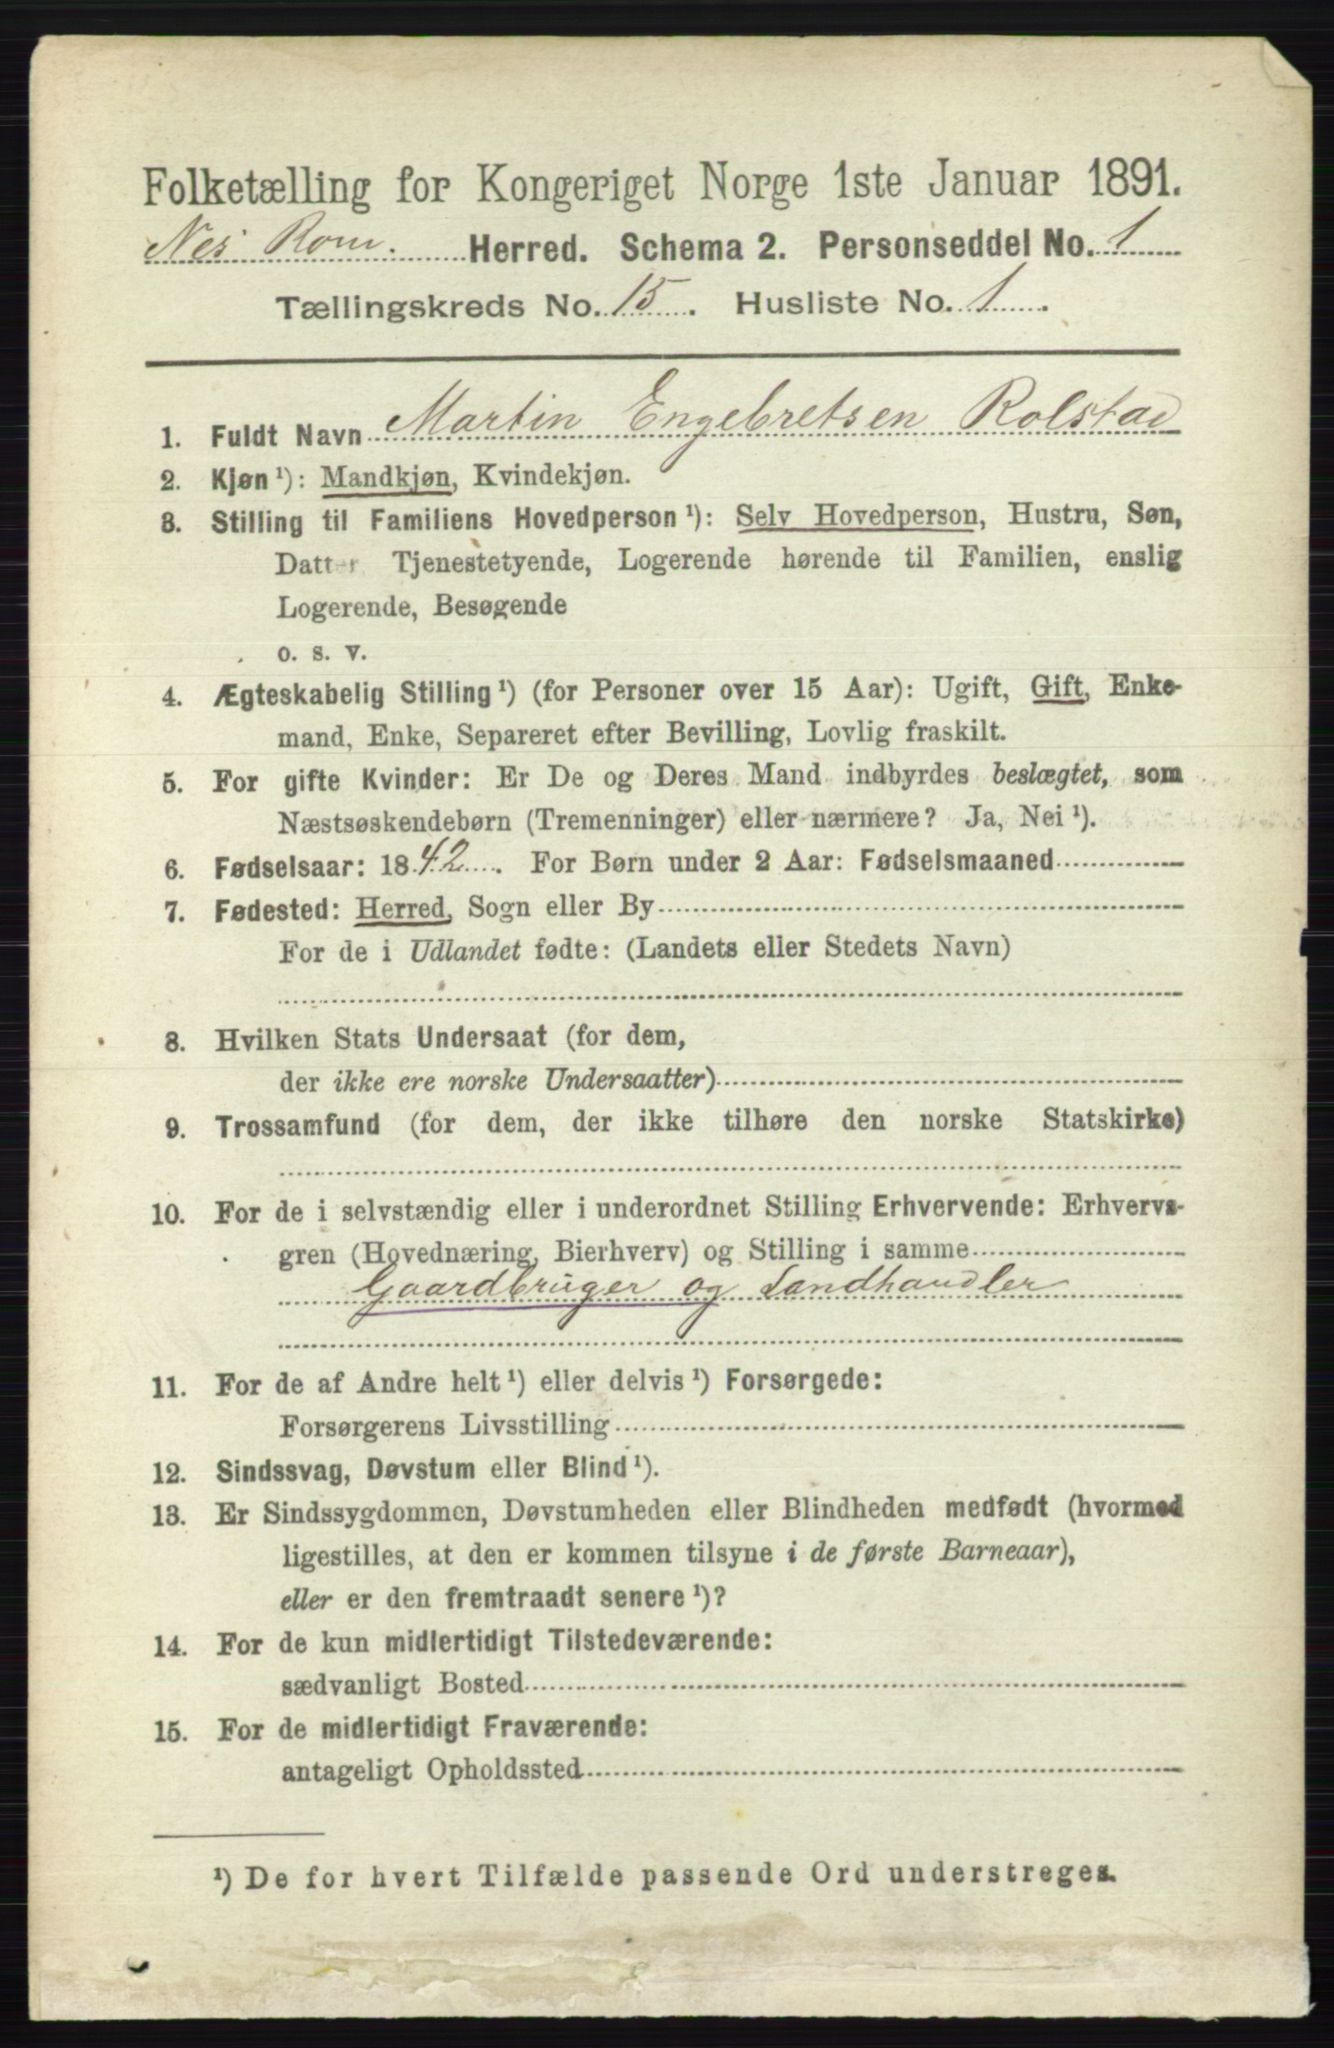 Folketælling for Kongeriget Norge 1ste Januar 1891.
Nes Rom. Herred. Schema 2. Personseddel No. 1
Tællingskreds No. 15. Husliste No. 1.
1. Fuldt Navn Martin Engebretsen Rolstad
2. Kjøn ¹): Mandkjøn, Kvindekjøn.
3. Stilling til Familiens Hovedperson ¹): Selv Hovedperson, Hustru, Søn,
Datter Tjenestetyende, Logerende hørende til Familien, enslig
Logerende, Besøgende
o. s. v.
4. Ægteskabelig Stilling ¹) (for Personer over 15 Aar): Ugift, Gift, Enke-
mand, Enke, Separeret efter Bevilling, Lovlig fraskilt.
5. For gifte Kvinder: Er De og Deres Mand indbyrdes beslægtet, som
Næstsøskendebørn (Tremenninger) eller nærmere? Ja, Nei ¹).
6. Fødselsaar: 1842. For Børn under 2 Aar: Fødselsmaaned
7. Fødested: Herred, Sogn eller By
For de i Udlandet fødte: (Landets eller Stedets Navn)
8. Hvilken Stats Undersaat (for dem,
der ikke ere norske Undersaatter)
9. Trossamfund (for dem, der ikke tilhøre den norske Statskirke)
10. For de i selvstændig eller i underordnet Stilling Erhvervende: Erhvervs-
gren (Hovednæring, Bierhverv) og Stilling i samme
Gaardbruger og Landhandler
11. For de af Andre helt ¹) eller delvis ¹) Forsørgede:
Forsørgerens Livsstilling
12. Sindssvag, Døvstum eller Blind ¹).
13. Er Sindssygdommen, Døvstumheden eller Blindheden medfødt (hvormed
ligestilles, at den er kommen tilsyne i de første Barneaar),
eller er den fremtraadt senere ¹)?
14. For de kun midlertidigt Tilstedeværende:
sædvanligt Bosted
15. For de midlertidigt Fraværende:
antageligt Opholdssted
¹) De for hvert Tilfælde passende Ord understreges.